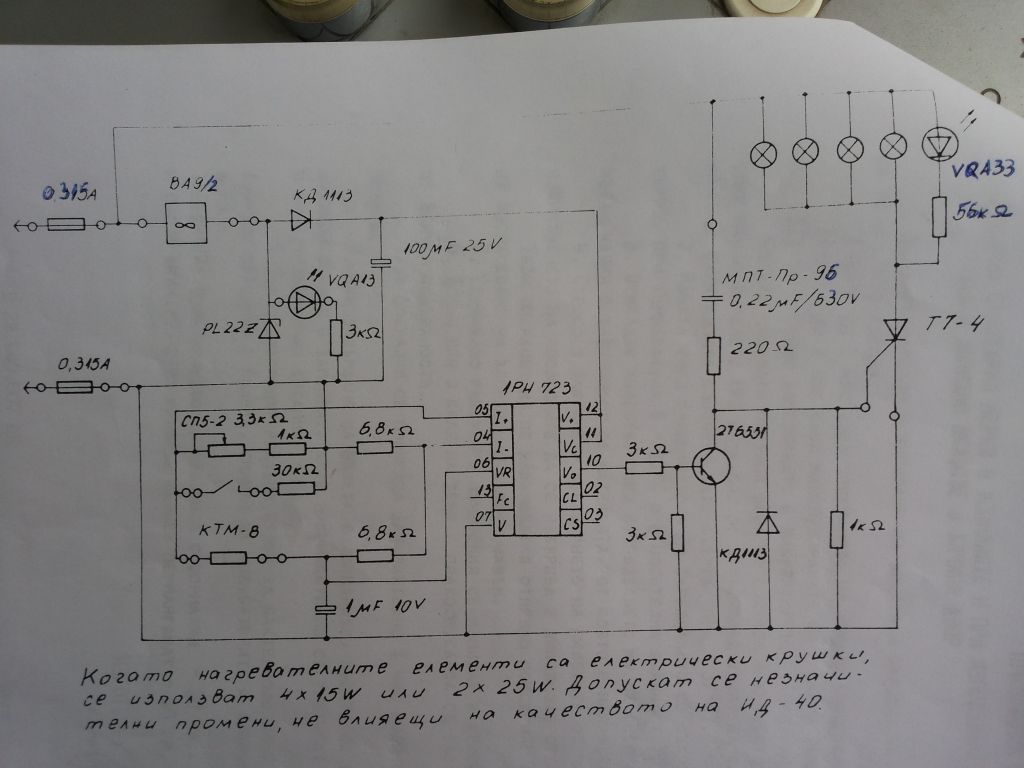 0,315A
ВА9/2
КД1113
100μF 25V
VQA13
PL22Z
3кΩ
0,315A
СП5-2 3,3кΩ
1кΩ
30кΩ
6,8кΩ
КТМ-В
6,8кΩ
1μF 10V
1РН 723
05 I+ V+ 12
04 I- Vc 11
06 VR Vo 10
13 Fc CL 02
07 V CS 03
3кΩ
3кΩ
2Т6551
КД1113
1кΩ
МПТ-Пр-96
0,22μF/630V
220Ω
VQA33
56кΩ
Т7-4
Когато нагревателните елементи са електрически крушки,
се използват 4x15W или 2x25W. Допускат се незначи-
телни промени, не влияещи на качеството на ИД-40.